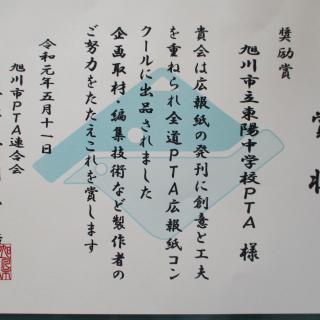 賞状
奨励賞
旭川市立東陽中学校PTA 様
貴会は広報紙の発刊に創意と工夫
を重ねられ全道PTA広報紙コン
クールに出品されました
企画取材・編集技術など製作者の
ご努力をたたえこれを賞します
令和元年五月十一日
旭川市PTA連合会